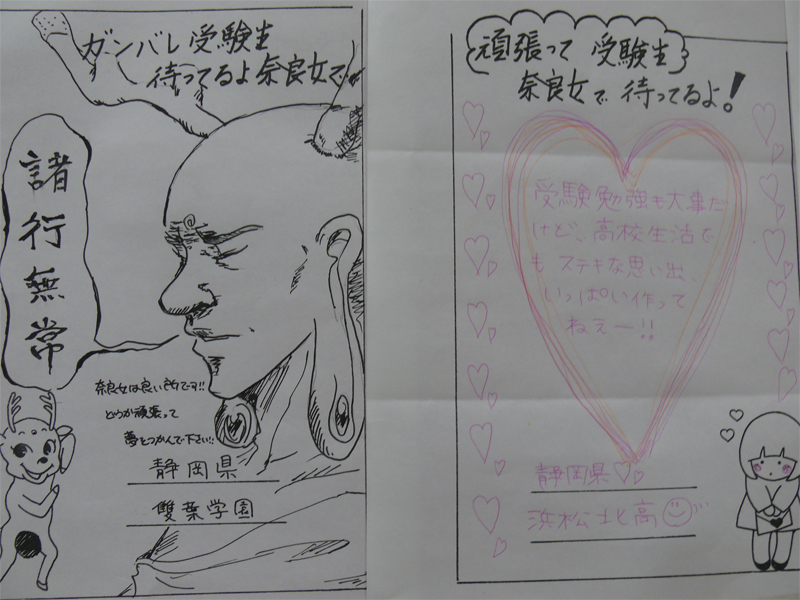 ガンバレ受験生
待ってるよ奈良女で
諸行無常
奈良女は良い所です!!
どうか頑張って
夢をつかんで下さい!!
静岡県
雙葉学園
頑張って 受験生
奈良女で 待ってるよ!
受験勉強も大事だ
けど、高校生活で
も ステキな思い出、
いっぱい作って
ねえー!!
静岡県
浜松北高